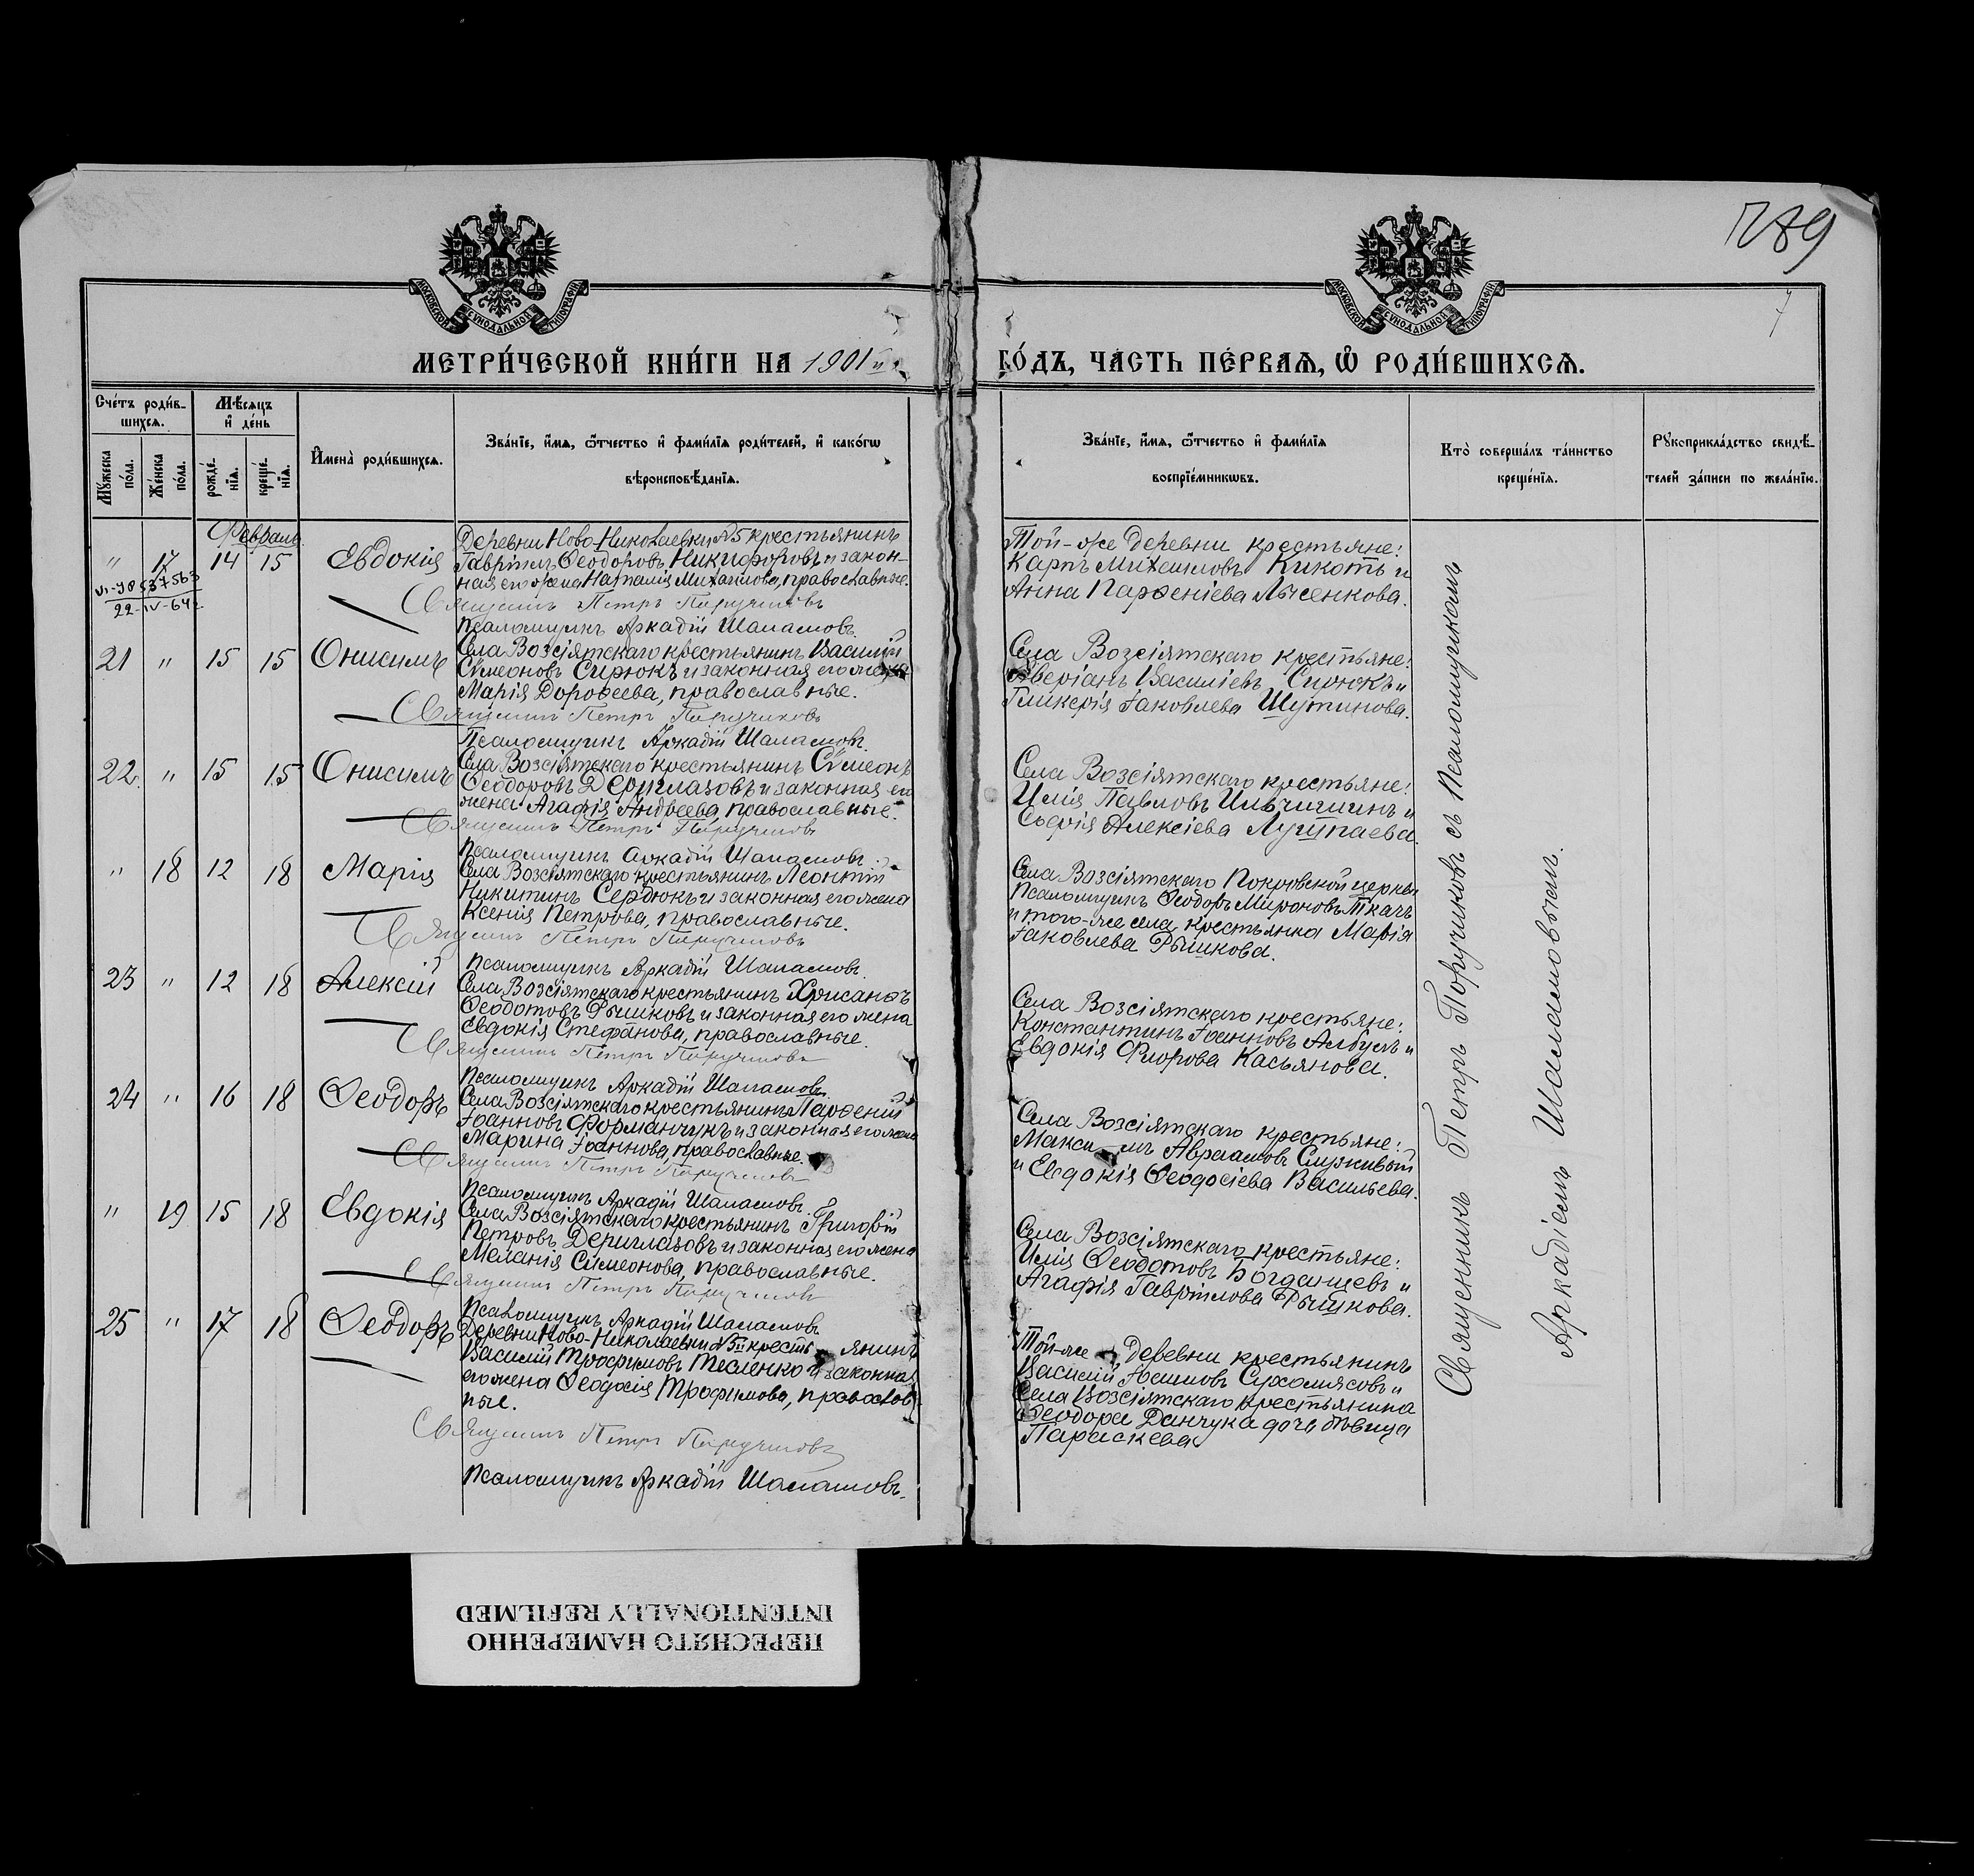 789
7
МОСКОВСКОЙ СѴНОДАЛЬНОЙ ТИПОГРАФІИ
МОСКОВСКОЙ СѴНОДАЛЬНОЙ ТИПОГРАФІИ
МЕТРИ́ЧЕСКОЙ КНИ́ГИ НА 1901 й
ГО́ДЪ, ЧА́СТЬ ПЕ́РВАѦ, Ѡ҆ РОДИ́ВШИХСѦ.
Сче́тъ роди́в-
шихсѧ.
Мѣ́сѧцъ
и҆ де́нь
Мꙋ́жеска
по́ла.
Же́нска
по́ла.
рожде́-
нїѧ.
креще́-
нїѧ.
И҆мена̀ роди́вшихсѧ.
Зва́нїе, и҆́мѧ, ѻ҆́тчество и҆ фами́лїѧ роди́телей, и҆ како́гѡ
вѣроисповѣ́данїѧ.
Зва́нїе, и҆́мѧ, ѻ҆́тчество и҆ фами́лїѧ
воспрїе́мникѡвъ.
Кто̀ соверша́лъ та́инство
креще́нїѧ.
Рꙋкоприкла́дство свидѣ́-
телей за́писи по жела́нїю.
Февраль.
" 17 14 15 Евдокія
Деревни Ново-Николаевки №5 крестьянинъ
Гавріилъ Ѳеодоровъ Никифоровъ и закон-
ная его жена Наталія Михаилова, православные.
Священникъ Петръ Поручиковъ
Псаломщикъ Аркадій Шаламовъ.
Той-же деревни крестьяне:
Карпъ Михаиловъ Кикоть и
Анна Парѳеніева Лысенкова.
VI-ЯО 537563
22-IV-64г.
21 " 15 15 Онисимъ
Села Возсіятскаго крестьянинъ Василій
Сѵмеоновъ Сирюкъ и законная его жена
Марія Дороѳеева, православные.
Священникъ Петръ Поручиковъ
Псаломщикъ Аркадій Шаламовъ.
Села Возсіятскаго крестьяне:
Аверіанъ Василіевъ Сирюкъ и
Гликерія Іаковлева Шутикова.
22. " 15 15 Онисимъ
Села Возсіятскаго крестьянинъ Сѵмеонъ
Ѳеодоровъ Дериглазовъ и законная его
жена Агафія Андреева, православные.
Священникъ Петръ Поручиковъ
Псаломщикъ Аркадій Шаламовъ.
Села Возсіятскаго крестьяне:
Илія Павловъ Ильчишинъ и
Софія Алексіева Лушпаева.
" 18 12 18 Марія
Села Возсіятскаго крестьянинъ Леонтій
Никитинъ Сердюкъ и законная его жена
Ксенія Петрова, православные.
Священникъ Петръ Поручиковъ
Псаломщикъ Аркадій Шаламовъ.
Села Возсіятскаго Покровской церкви
Псаломщикъ Ѳеодоръ Мироновъ Ткачъ
и того-же села крестьянка Марія
Іаковлева Рышкова.
23 " 12 18 Алексій
Села Возсіятскаго крестьянинъ Хрисанѳъ
Ѳеодотовъ Рышковъ и законная его жена
Евдокія Стефанова, православные.
Священникъ Петръ Поручиковъ
Псаломщикъ Аркадій Шаламовъ.
Села Возсіятскаго крестьяне:
Константинъ Іоанновъ Албулъ и
Евдокія Флорова Касьянова.
24 " 16 18 Ѳеодоръ
Села Возсіятскаго крестьянинъ Парѳеній
Іоанновъ Форманчукъ и законная его жена
Марина Іоаннова, православные.
Священникъ Петръ Поручиковъ
Псаломщикъ Аркадій Шаламовъ.
Села Возсіятскаго крестьяне:
Максимъ Авраамовъ Служивый
и Евдокія Ѳеодосіева Васильева.
" 19 15 18 Евдокія
Села Возсіятскаго крестьянинъ Григорій
Петровъ Дериглазовъ и законная его жена
Меланія Сѵмеонова, православные.
Священникъ Петръ Поручиковъ
Псаломщикъ Аркадій Шаламовъ
Села Возсіятскаго крестьяне:
Илія Ѳеодотовъ Богданцевъ и
Агафія Гавріилова Рышкова.
25 " 17 18 Ѳеодоръ
Деревни Ново-Николаевки №5 крестьянинъ
Василій Трофимовъ Тесленко и законная
его жена Ѳеодосія Трофимова, православ
ные.
Священникъ Петръ Поручиковъ
Псаломщикъ Аркадій Шаламовъ.
Той-же деревни крестьянинъ
Василій Сухомясовъ и
Села Возсіятскаго крестьянина
Ѳеодора Данчука дочь дѣвица
Параскева
Священникъ Петръ Поручиковъ съ Псаломщикомъ
Аркадіемъ Шаламовымъ.
ПЕРЕСНЯТО НАМЕРЕННО
INTENTIONALLY REFILMED